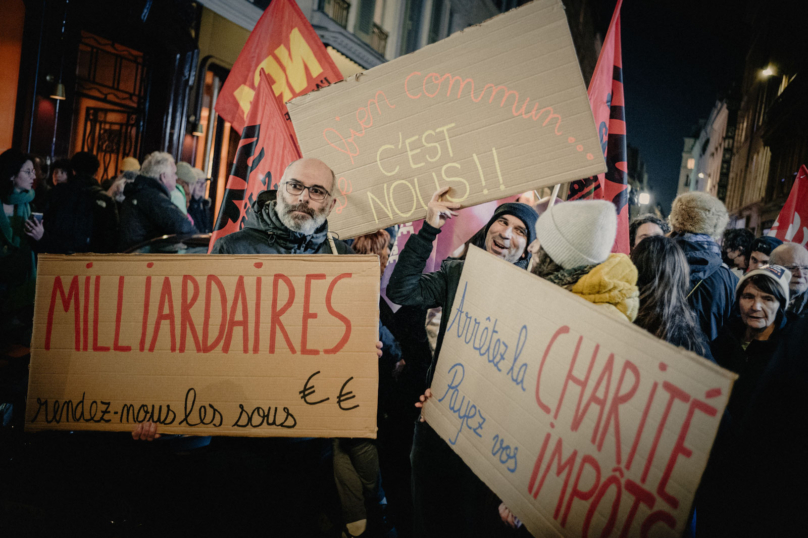 NPA
bien commun...
C'EST
NOUS!!
MILLIARDAIRES
rendez-nous les sous €€
Arrêtez la
CHARITÉ
Payez vos
IMPÔTS